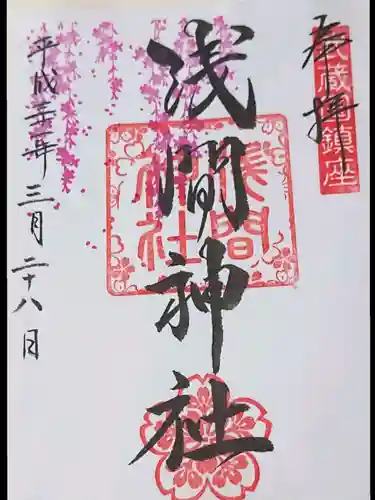 奉拝
武蔵國鎮座
浅間神社
浅間
神社
平成三十一年三月二十八日